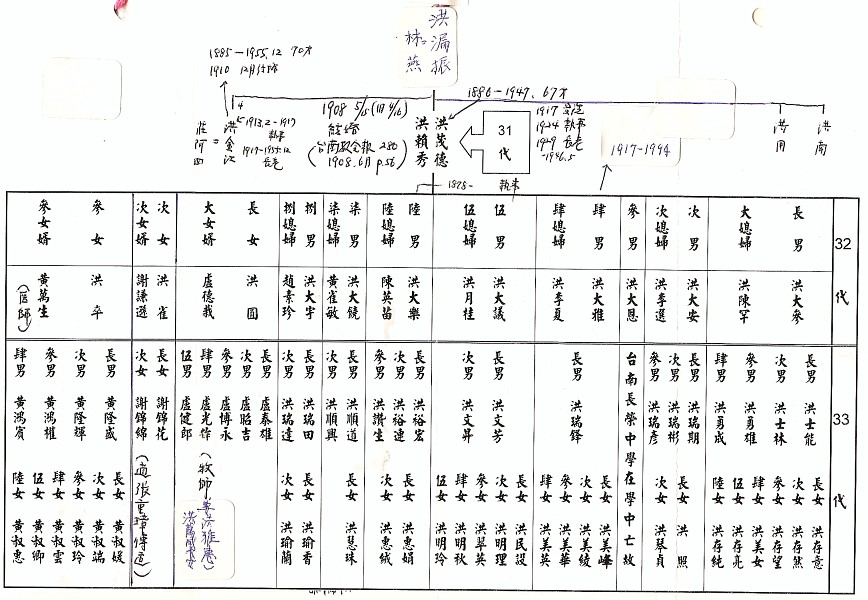 洪漏振
林=燕
1885-1955.12 70才
1910 12月結婚
1886-1947. 67才
洪茂德
洪賴秀
31代
1908 5/15(旧4/16)
結婚
台南教会報 286
1908.6月 p.56
4
1913.2-1917
執事
1917-1955.12
長老
洪金江
=
1917
1924 執事
1929 長老
-1946.5
1917-1994
洪南
1878-
執事
32代
長男 洪大參
大媳婦 洪陳罕
次男 洪大安
次媳婦 洪李選
參男 洪大恩
肆男 洪大雅
肆媳婦 洪李夏
伍男 洪大議
伍媳婦 洪月桂
陸男 洪大樂
陸媳婦 陳英苗
柒男 洪大鐃
柒媳婦 黃雀敏
捌男 洪大宇
捌媳婦 趙素珍
長女 洪圓
大女婿 盧德哉
次女 洪雀
次女婿 謝謙遜
參女 洪平
參女婿 黃萬生
(医師)
33代
長男 洪士能
次男 洪士林
參男 洪勇雄
肆男 洪勇成
長女 洪存意
次女 洪存慈
參女 洪存望
肆女 洪美女
伍女 洪存亮
陸女 洪存純
長男 洪瑞期
次男 洪瑞彬
參男 洪瑞彥
長女 洪照
次女 洪琴貞
台南長榮中學在學中亡故
長男 洪瑞鋒
長女 洪美峰
次女 洪美綾
參女 洪美華
肆女 洪美英
長男 洪文芳
次男 洪文昇
長女 洪民設
次女 洪明理
參女 洪翠英
肆女 洪明秋
伍女 洪明玲
長男 洪裕宏
次男 洪裕連
參男 洪讚生
長女 洪惠娟
次女 洪惠絨
長男 洪順道
次男 洪順興
長女 洪慧珠
長男 洪瑞田
次男 洪瑞達
長女 洪瑜香
次女 洪瑜蘭
長男 盧泰雄
次男 盧昭吉
參男 盧博永
肆男 盧光偉
伍男 盧健郎
(牧師)
長女 謝錦花
次女 謝錦綿
長男 黃隆盛
次男 黃隆輝
參男 黃鴻權
肆男 黃鴻賓
長女 黃淑媛
次女 黃淑端
參女 黃淑玲
肆女 黃淑雲
伍女 黃淑卿
陸女 黃淑惠